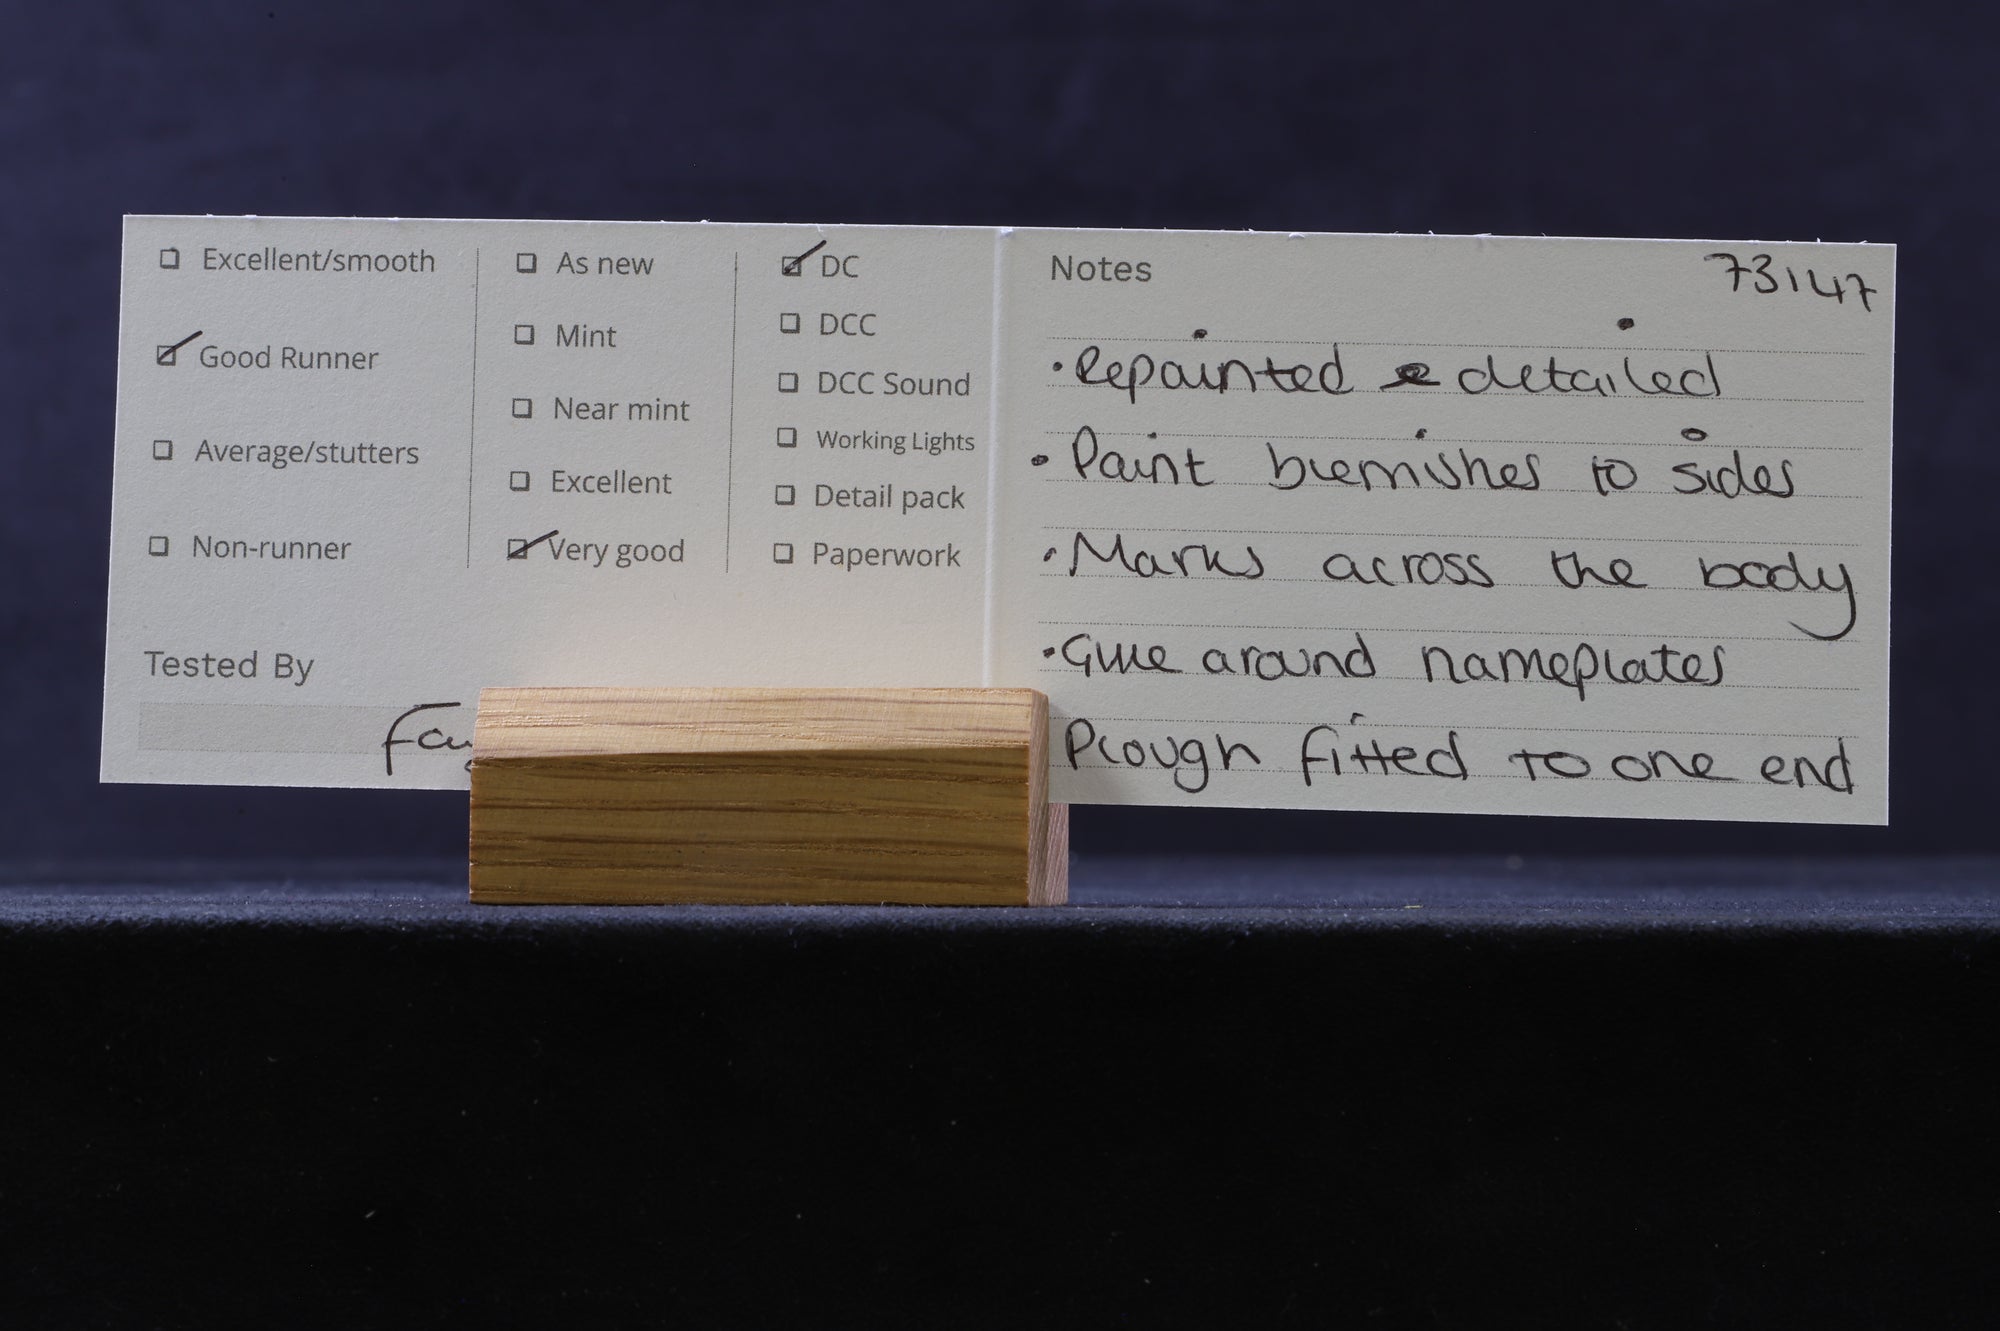 Excellent/smooth
Good Runner
Average/stutters
Non-runner
Tested By
As new
Mint
Near mint
Excellent
Very good
DC
DCC
DCC Sound
Working Lights
Detail pack
Paperwork
Notes 73147
• Repainted & detailed
• Paint blemishes to sides
• Marks across the body
• Glue around nameplates
Plough fitted to one end